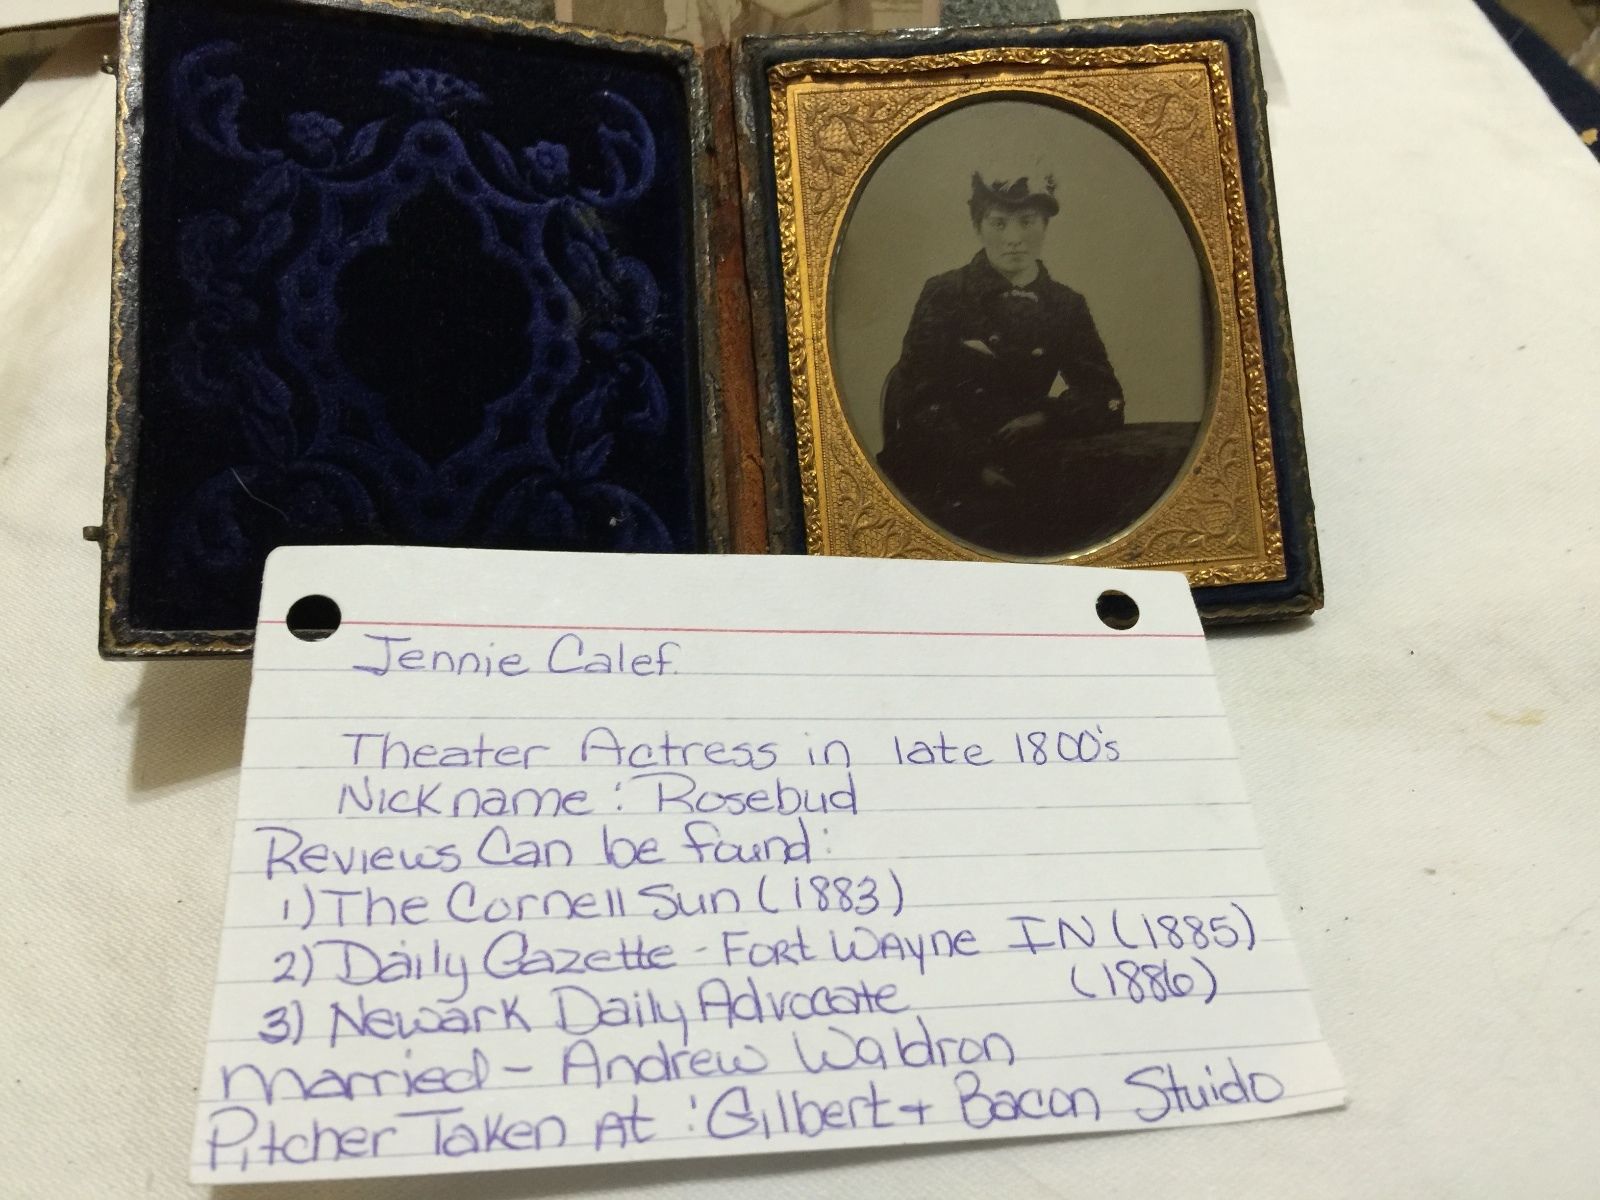 Jennie Calef.
Theater Actress in late 1800's
Nickname: Rosebud
Reviews Can be found:
1) The Cornell Sun (1883)
2) Daily Gazette - Fort Wayne IN (1885)
3) Newark Daily Advocate (1886)
Married - Andrew Waldron
Pitcher Taken At: Gilbert + Bacon Stuido